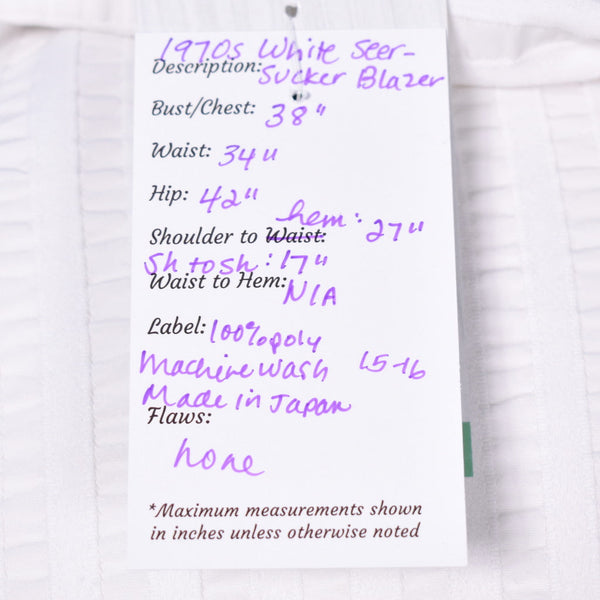 1970s White Seer-
Description: Sucker Blazer
Bust/Chest: 38"
Waist: 34"
Hip: 42"
hem:
Shoulder to Waist: 27"
Sh to sh: 17"
Waist to Hem: N/A
Label: 100% poly
Machine wash 15-16
Made in Japan
Flaws:
none
*Maximum measurements shown
in inches unless otherwise noted